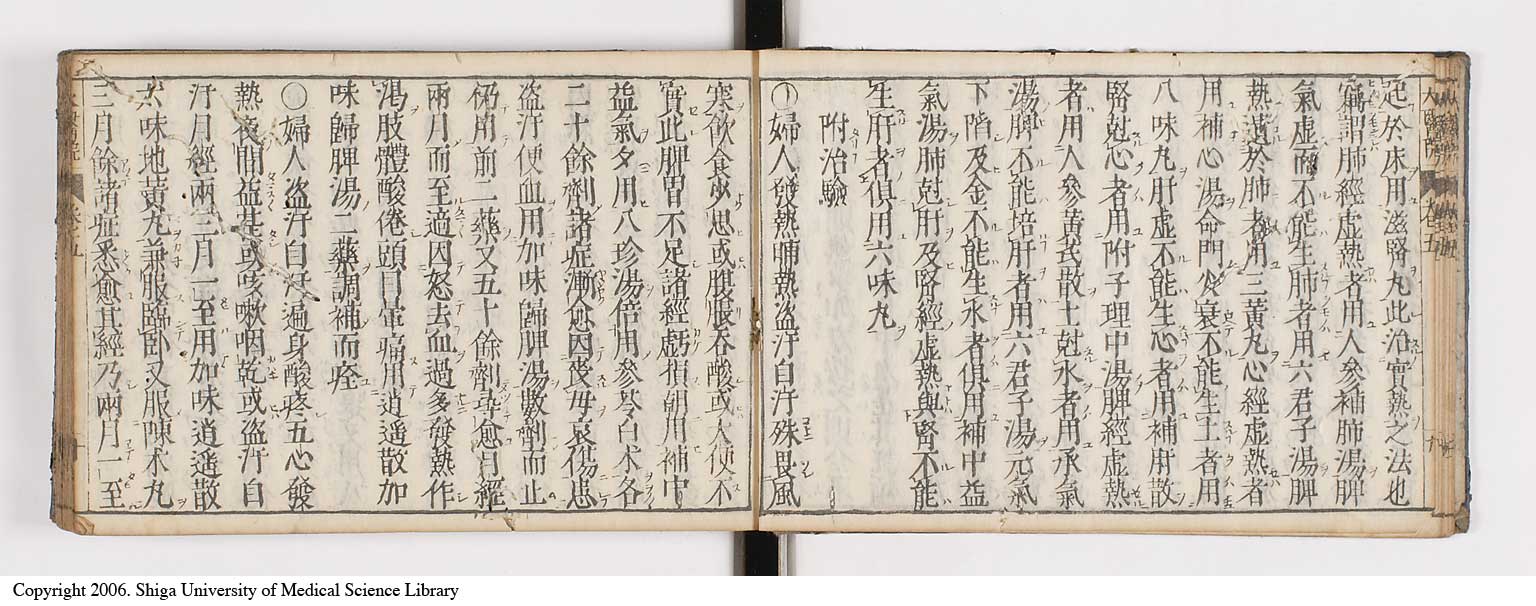 起於床用滋腎丸此治實熱之法也
竊謂肺經虛熱者用人參補肺湯脾
氣虛而不能生肺者用六君子湯脾
熱遺於肺者用三黃丸心經虛熱者
用補心湯命門火衰不能生土者用
八味丸肝虛不能生心者用補肝散
腎尅心者用附子理中湯脾經虛熱
者用人參黃芪散土尅水者用承氣
湯脾不能培肝者用六君子湯元氣
下陷及金不能生水者俱用補中益
氣湯肺尅肝及腎經虛熱與腎不能
生肝者俱用六味丸
附治驗
〇婦人發熱晡熱盜汗自汗殊畏風
寒飲食少思或腹脹吞酸或大便不
實此脾胃不足諸經虧損朝用補中
益氣夕用八珍湯倍用參芩白朮各
二十餘劑諸症漸愈因喪母哀傷患
盜汗便血用加味歸脾湯數劑而止
仍用前二藥又五十餘劑尋愈月經
兩月而至適因怒去血過多發熱作
渴肢體酸倦頭目軍痛用逍遙散加
味歸脾湯二藥調補而痊
〇婦人盜汗自汗遍身酸疼五心發
熱夜間益甚或咳嗽咽乾或盜汗自
汗月經兩三月一至用加味逍遙散
六味地黃丸兼服臨臥又服陳朮丸
三月餘諸症悉愈其經乃兩月一至
Copyright 2006. Shiga University of Medical Science Library